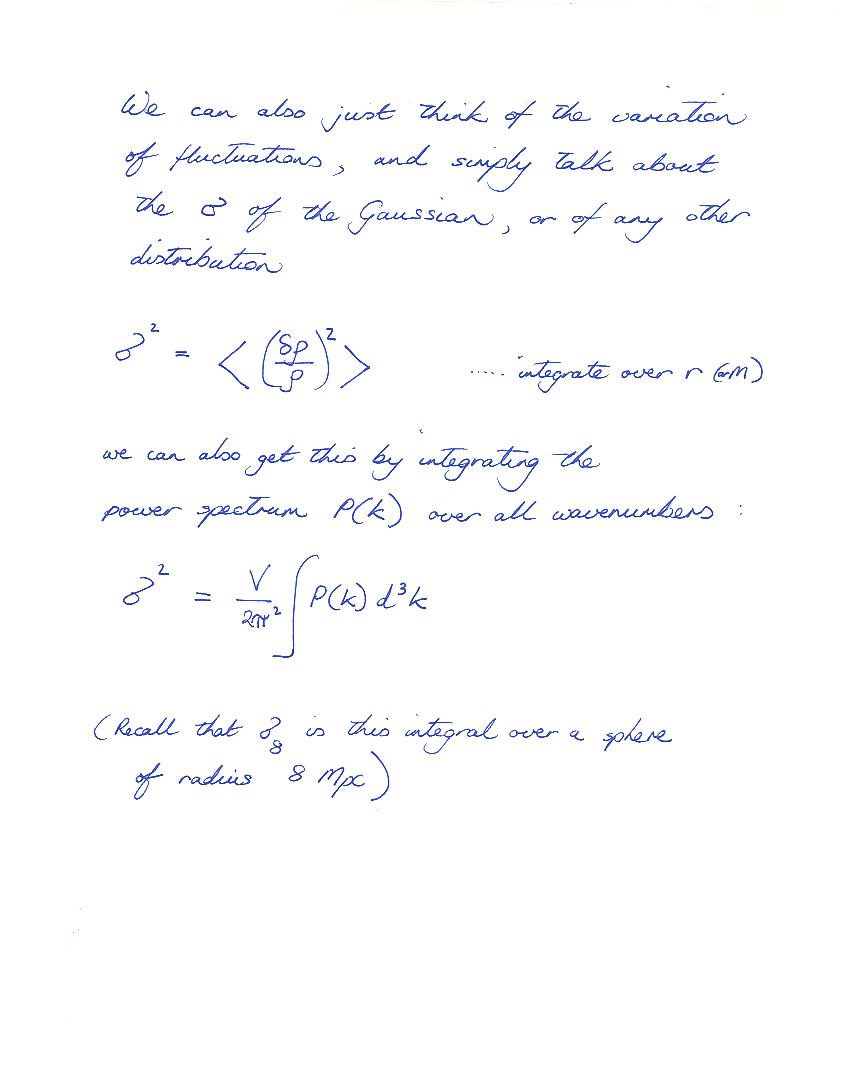 We can also just think of the variation
of fluctuations, and simply talk about
the σ of the Gaussian, or of any other
distribution
σ² = < (δρ/ρ)² > ..... integrate over r (or M)
we can also get this by integrating the
power spectrum P(k) over all wavenumbers :
σ² = V/2π² ∫ P(k) d³k
(Recall that σ₈ is this integral over a sphere
of radius 8 Mpc)